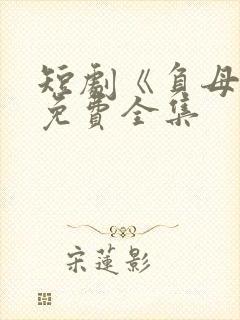 短劇《負母
免費全集
宋蓮影